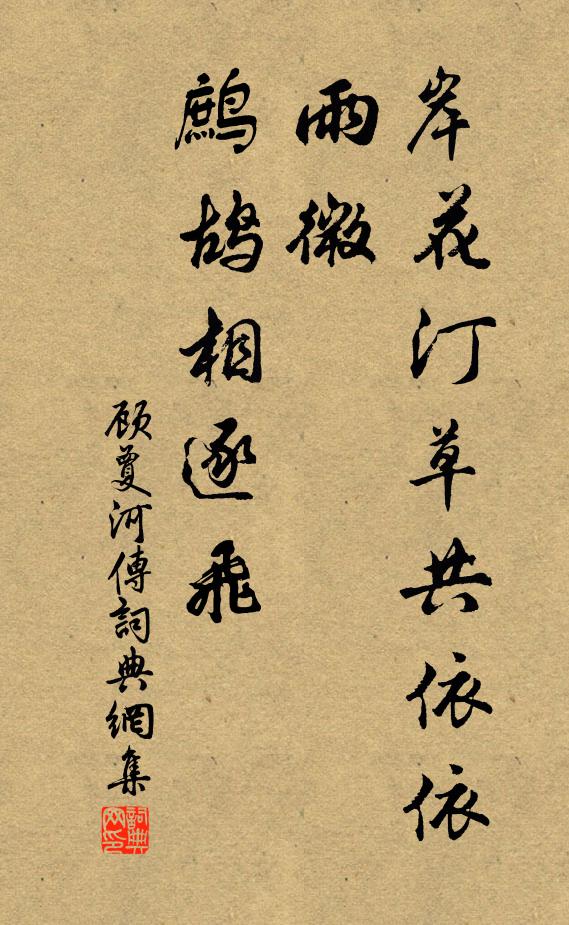 岸花汀草共依依
雨微
鷓鴣相逐飛
顧夐河傳詞典網集
詞典網印